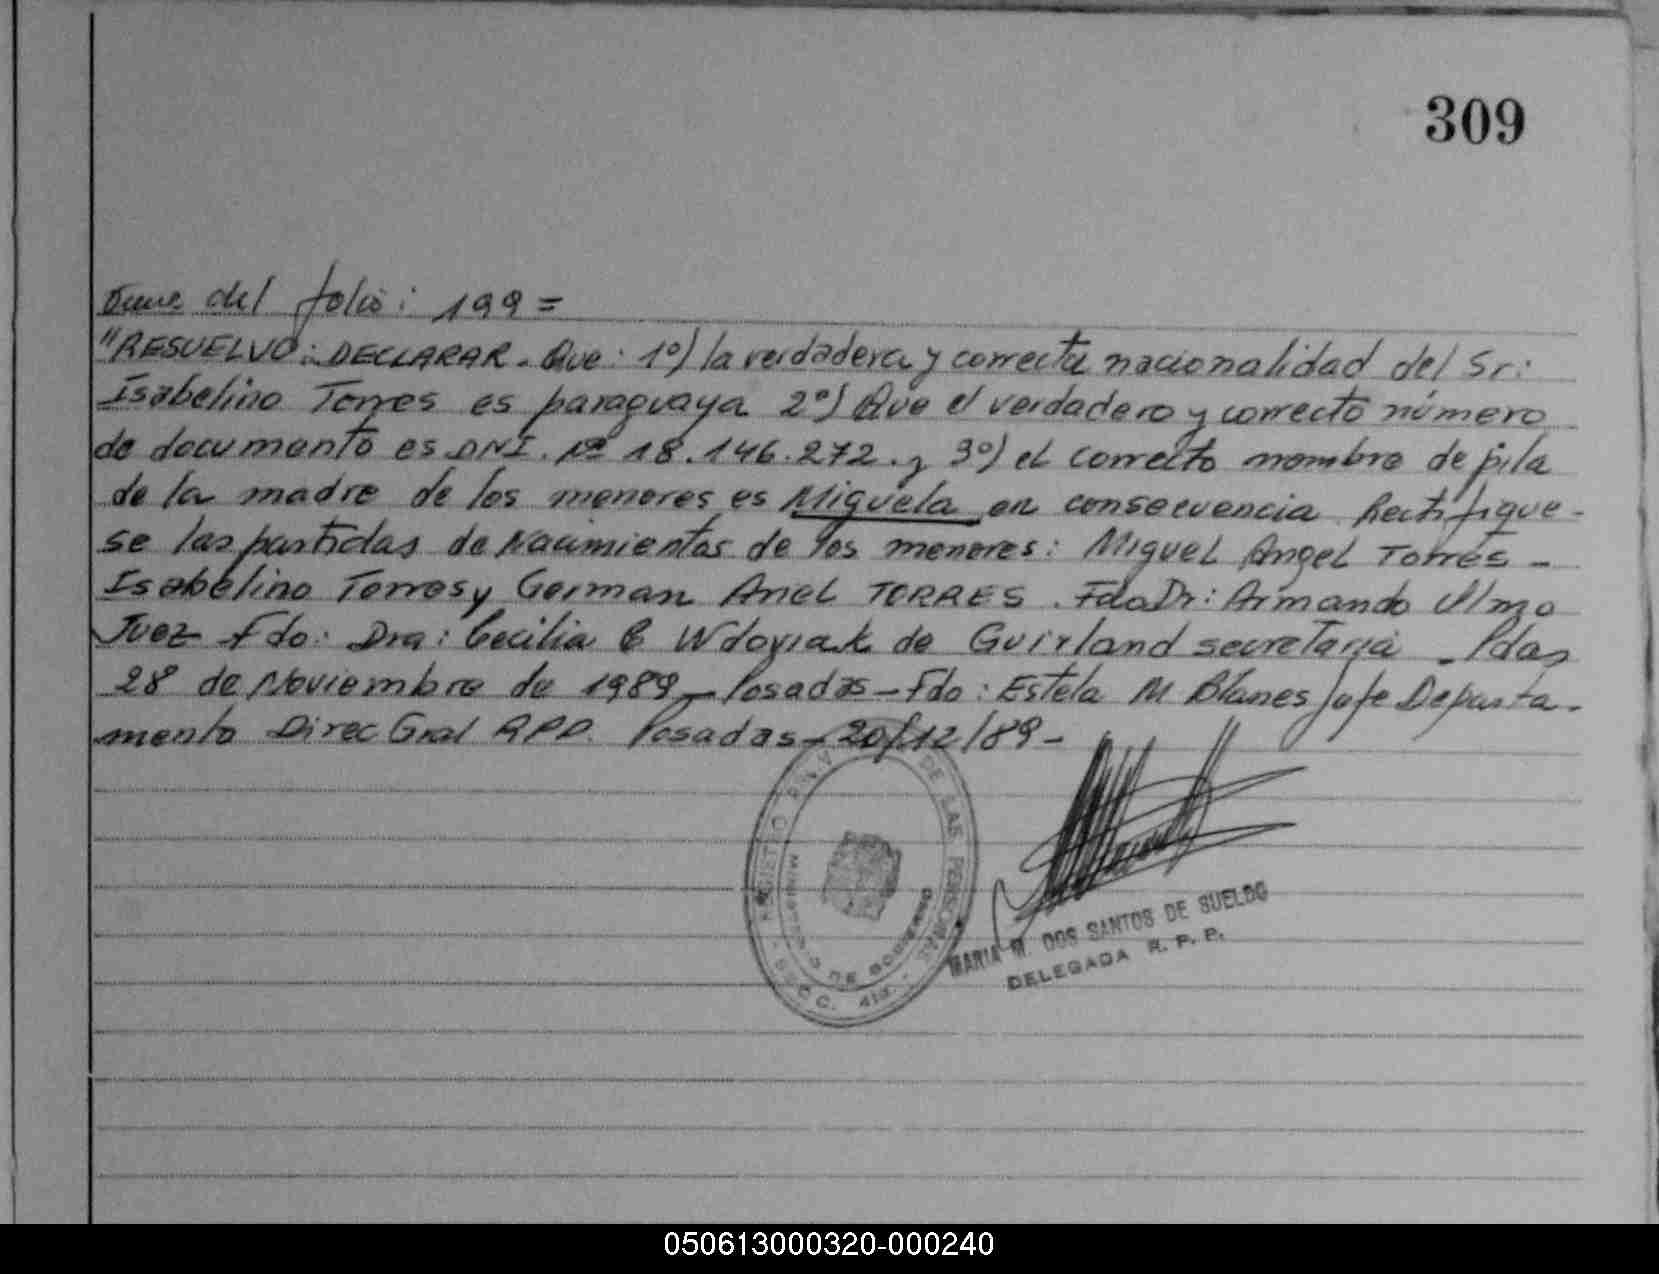 309
Viene del folio: 199=
"RESUELVO: DECLARAR. Que: 1º) la verdadera y correcta nacionalidad del Sr:
Isabelino Torres es paraguaya 2º) Que el verdadero y correcto número
de documento es DNI. Nº 18.146.272. y 3º) el correcto nombre de pila
de la madre de los menores es Miguela en consecuencia Rectifique-
se las partidas de Nacimientos de los menores: Miguel Angel Torres -
Isabelino Torres y German Ariel TORRES. Fdo Dr: Armando
Juez Fdo: Dra: Cecilia C Wdoviak de Guirland secretaria - Pdas
28 de Noviembre de 1989 - Posadas - Fdo: Estela M Blanes Jefe Departa-
mento Direc Gral RPP. Posadas - 20/12/89 -
REGISTRO PROV. DE LAS PERSONAS
MINISTERIO DE GOBIERNO
SECC.
MARIA M. DOS SANTOS DE SUELDO
DELEGADA R. P. P.
050613000320-000240